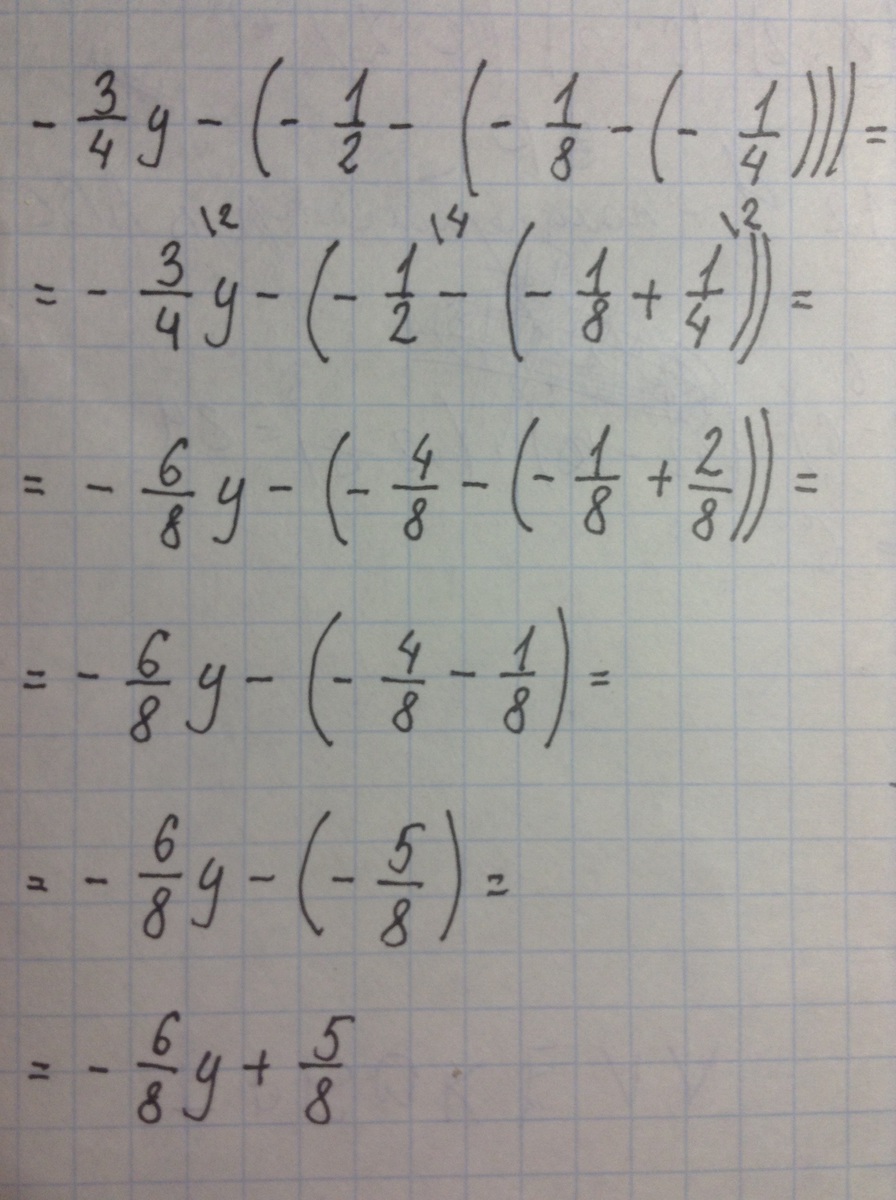 - 3/4 y - (- 1/2 - (- 1/8 - (- 1/4))) =
= - 3/4 \2 y - (- 1/2 \4 - (- 1/8 + 1/4 \2)) =
= - 6/8 y - (- 4/8 - (- 1/8 + 2/8)) =
= - 6/8 y - (- 4/8 - 1/8) =
= - 6/8 y - (- 5/8) =
= - 6/8 y + 5/8